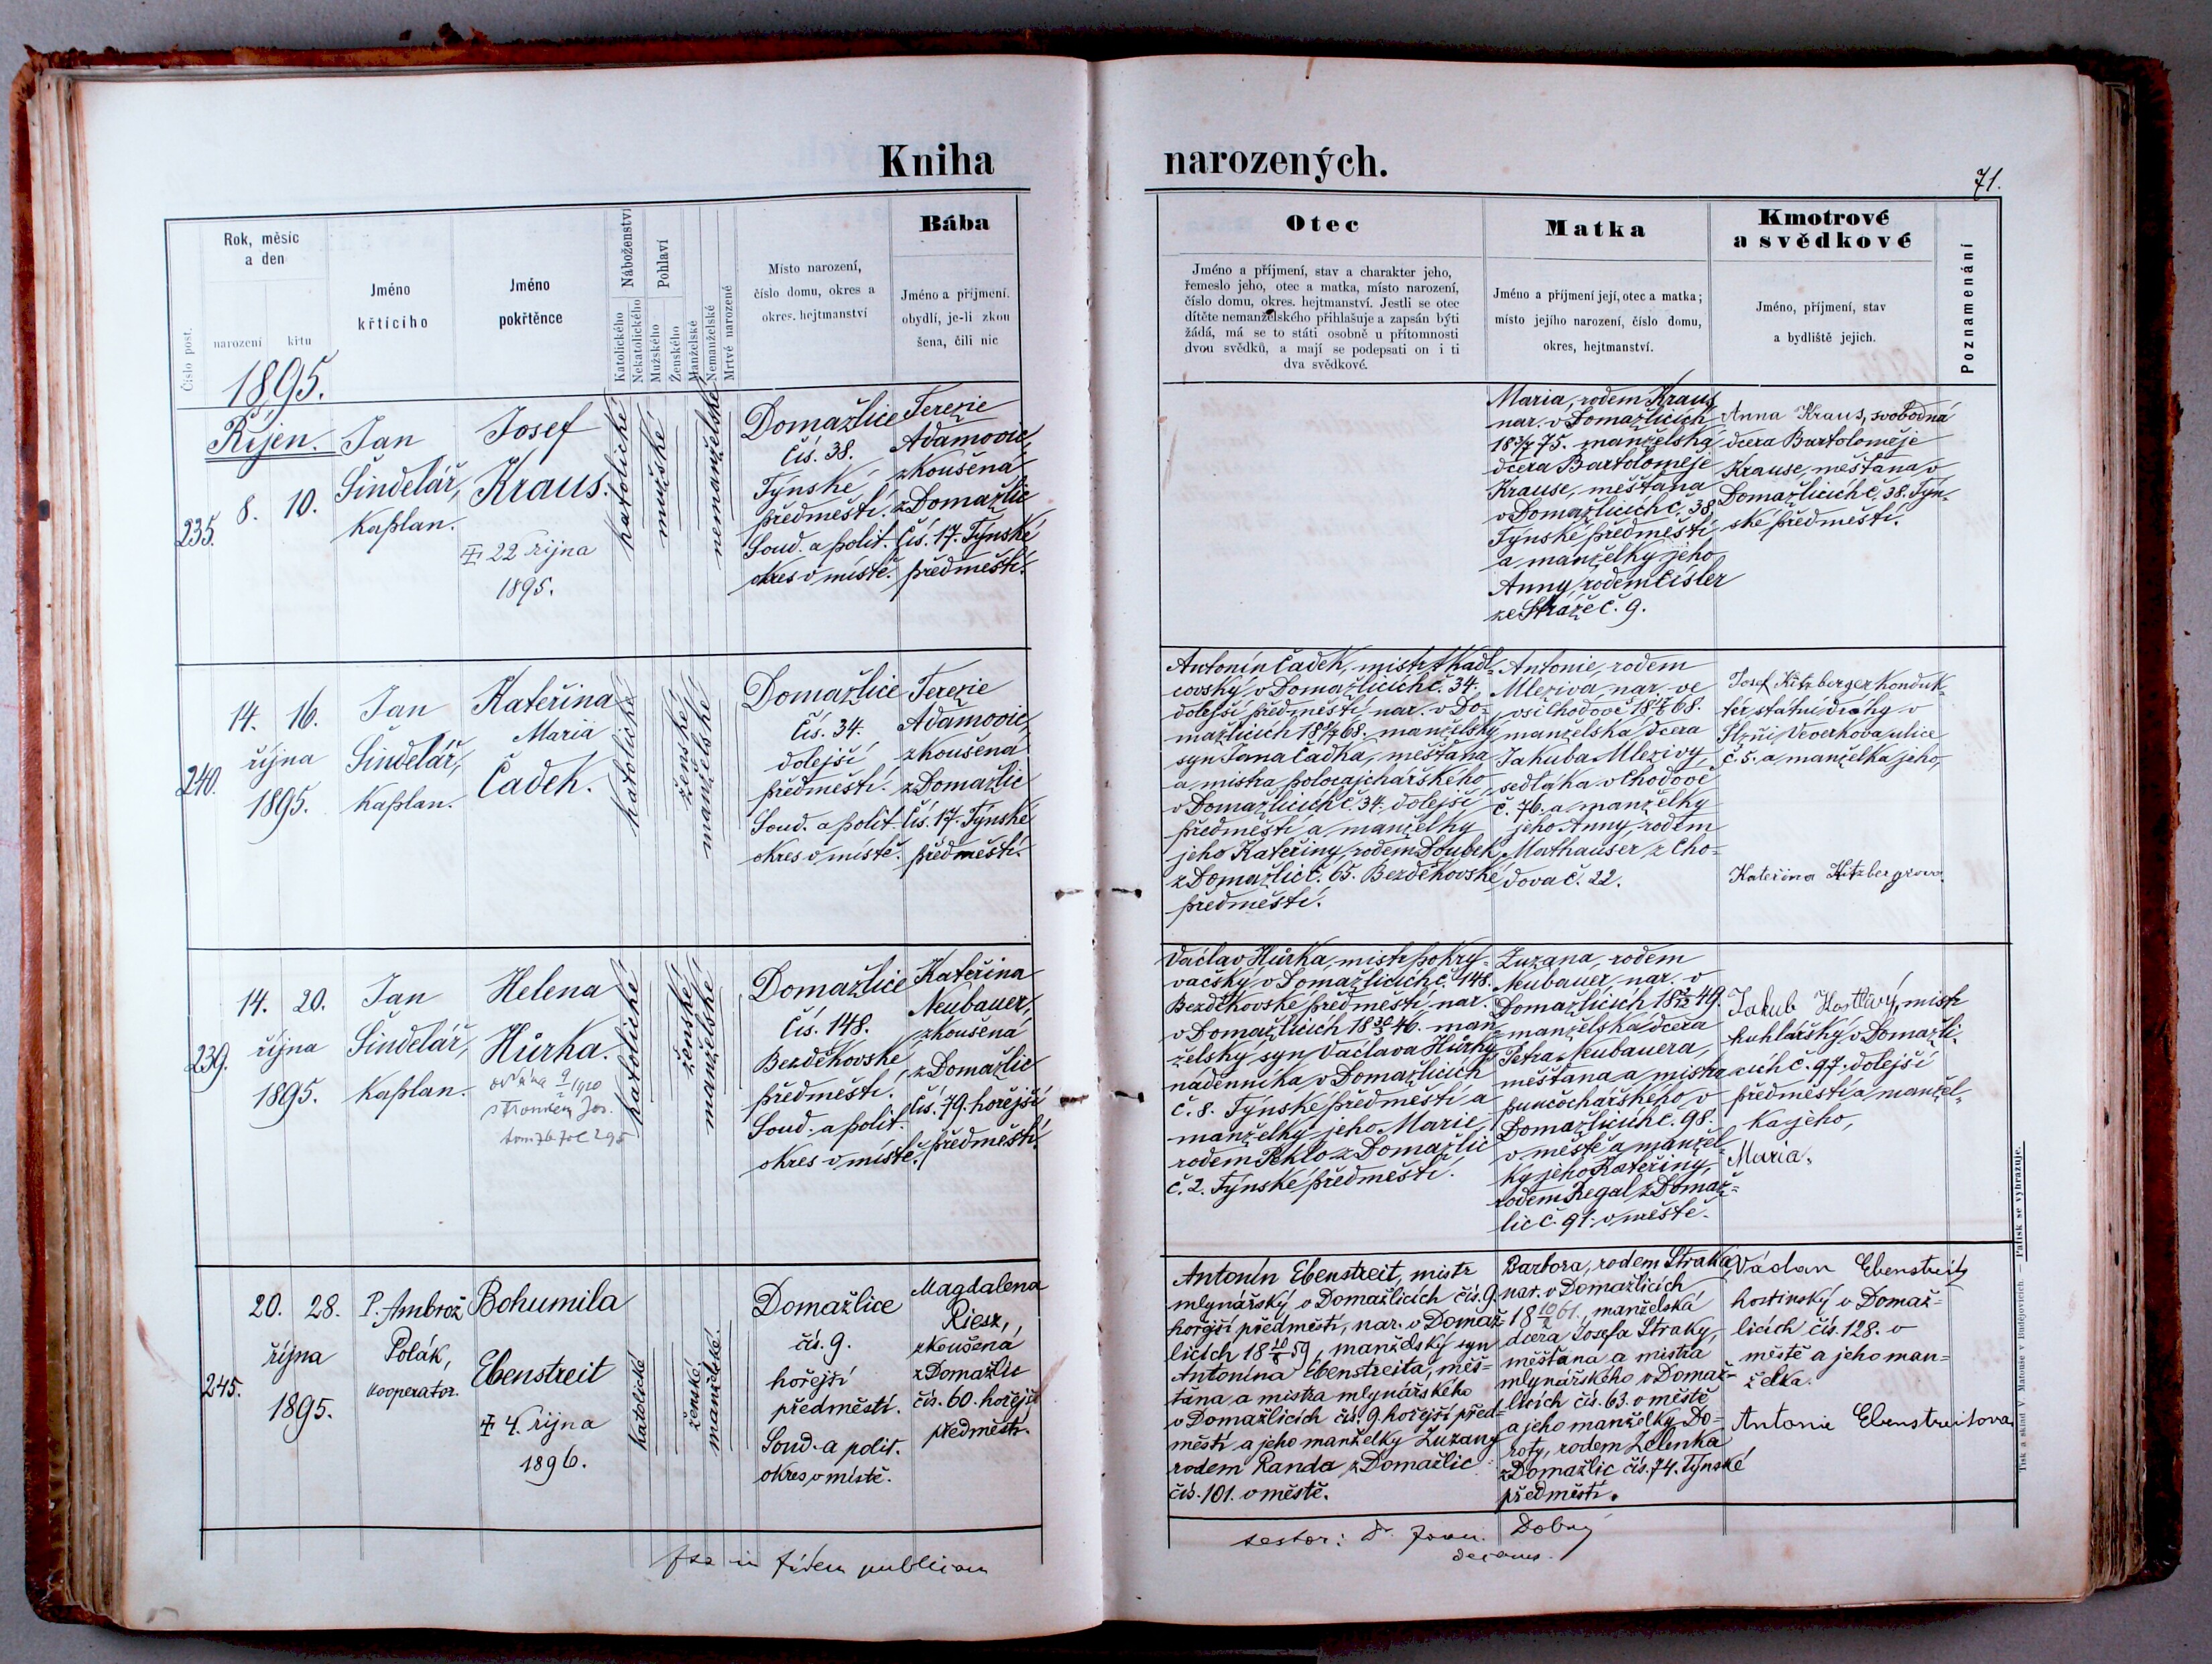 Kniha narozených.
71.
Číslo post.
Rok, měsíc
a den
narození
křtu
Jméno
křtícího
Jméno
pokřtěnce
Náboženství
Katolického
Nekatolického
Pohlaví
Mužského
Ženského
Manželské
Nemanželské
Mrtvé narozené
Místo narození,
číslo domu, okres a
okres. hejtmanství
Bába
Jméno a příjmení.
obydlí, je-li zkou
šena, čili nic
Otec
Jméno a příjmení, stav a charakter jeho,
řemeslo jeho, otec a matka, místo narození,
číslo domu, okres. hejtmanství. Jestli se otec
dítěte nemanželského přihlašuje a zapsán býti
žádá, má se to státi osobně u přítomnosti
dvou svědků, a mají se podepsati on i ti
dva svědkové.
Matka
Jméno a příjmení její, otec a matka;
místo jejího narození, číslo domu,
okres, hejtmanství.
Kmotrové
a svědkové
Jméno, příjmení, stav
a bydliště jejich.
Poznamenání
1895.
Říjen.
235.
8. 10.
Jan
Šindelář,
kaplan.
Josef
Kraus.
22 října
1895.
katolické
mužské
nemanželské
Domažlice
čís. 38.
Týnské
předměstí.
Soud. a polit.
okres v místě.
Terezie
Adamovic,
zkoušená
z Domažlic
čís. 17. Týnské
předměstí.
Maria, rodem Kraus,
nar. v Domažlicích
75. manželská
dcera Bartoloměje
Krause, měšťana
v Domažlicích č. 38,
Týnské předměstí
a manželky jeho
Anny, rodem Cisler
ze Stráže č. 9.
Anna Kraus, svobodná
dcera Bartoloměje
Krause, měšťana v
Domažlicích č. 38. Týn-
ské předměstí.
240.
14. 16.
října
1895.
Jan
Šindelář,
kaplan.
Kateřina
Maria
Čadek.
katolické
ženské
manželské
Domažlice
čís. 34.
dolejší
předměstí.
Soud. a polit.
okres v místě.
Terezie
Adamovic,
zkoušená
z Domažlic
čís. 17. Týnské
předměstí.
Antonín Čadek, mistr tkadl-
covský v Domažlicích č. 34.
dolejší předměstí, nar. v Do-
mažlicích 68. manželský
syn Jana Čadka, měšťana
a mistra
v Domažlicích č. 34. dolejší
předměstí a manželky
jeho Kateřiny, rodem Doubek
z Domažlic č. 65. Bezděkovské
předměstí.
Antonie, rodem
Mleziva, nar. ve
vsi Chodově 68.
manželská dcera
Jakuba Mlezivy,
sedláka v Chodově
č. 76. a manželky
jeho Anny, rodem
Mathauser z Cho-
dova č. 22.
Josef Kitzberger konduk-
tér státní dráhy v
Plzni, Veverkova ulice
č. 5. a manželka jeho,
Kateřina Kitzbergrova.
239.
14. 20.
října
1895.
Jan
Šindelář,
kaplan.
Helena
Hůrka.
1920
katolické
ženské
manželské
Domažlice
čís. 148.
Bezděkovské
předměstí.
Soud. a polit.
okres v místě.
Kateřina
Neubauer,
zkoušená
z Domažlic
čís. 79. hořejší
předměstí.
Václav Hůrka, mistr pokrý-
vačský v Domažlicích č. 148.
Bezděkovské předměstí, nar.
v Domažlicích 46. man-
želský syn Václava Hůrky,
nádenníka v Domažlicích
č. 8. Týnské předměstí a
manželky jeho Marie,
rodem z Domažlic
č. 2. Týnské předměstí.
Zuzana, rodem
Neubauer, nar. v
Domažlicích 49.
manželská dcera
Petra Neubauera,
měšťana a mistra
punčochářského v
Domažlicích č. 98.
v městě a manžel-
ky jeho Kateřiny,
rodem Regal z Domaž-
lic č. 91. v městě.
Jakub mistr
truhlářský v Domažli-
cích č. 97. dolejší
předměstí a manžel-
ka jeho,
Maria.
245.
20. 28.
října
1895.
P. Ambrož
Polák,
kooperator.
Bohumila
Ebenstreit
4. října
1896.
katolické
ženské
manželské.
Domažlice
čís. 9.
hořejší
předměstí.
Soud. a polit.
okres v místě.
Magdalena
Riesz,
zkoušená
z Domažlic
čís. 60. hořejší
předměstí.
Antonín Ebenstreit, mistr
mlynářský v Domažlicích čís. 9.
hořejší předměstí, nar. v Domaž-
licích 59, manželský syn
Antonína Ebenstreita, měš-
ťana a mistra mlynářského
v Domažlicích čís. 9. hořejší před-
městí a jeho manželky Zuzany
rodem Randa z Domažlic
čís. 101. v městě.
Barbora, rodem Straka,
nar. v Domažlicích
18 10/2 61, manželská
dcera Josefa Straky,
měšťana a mistra
mlynářského v Domaž-
licích čís. 63. v městě
a jeho manželky Do-
roty, rodem Zelenka
z Domažlic čís. 74. Týnské
předměstí.
Václav Ebenstreit,
hostinský v Domaž-
licích čís. 128. v
městě a jeho man-
želka.
Antonie Ebenstreitova
in fidem publicam
testor: Dr. Dobrý
decanus.
Tisk a sklad V. Matouše v Budějovicích. — Patisk se vyhražuje.